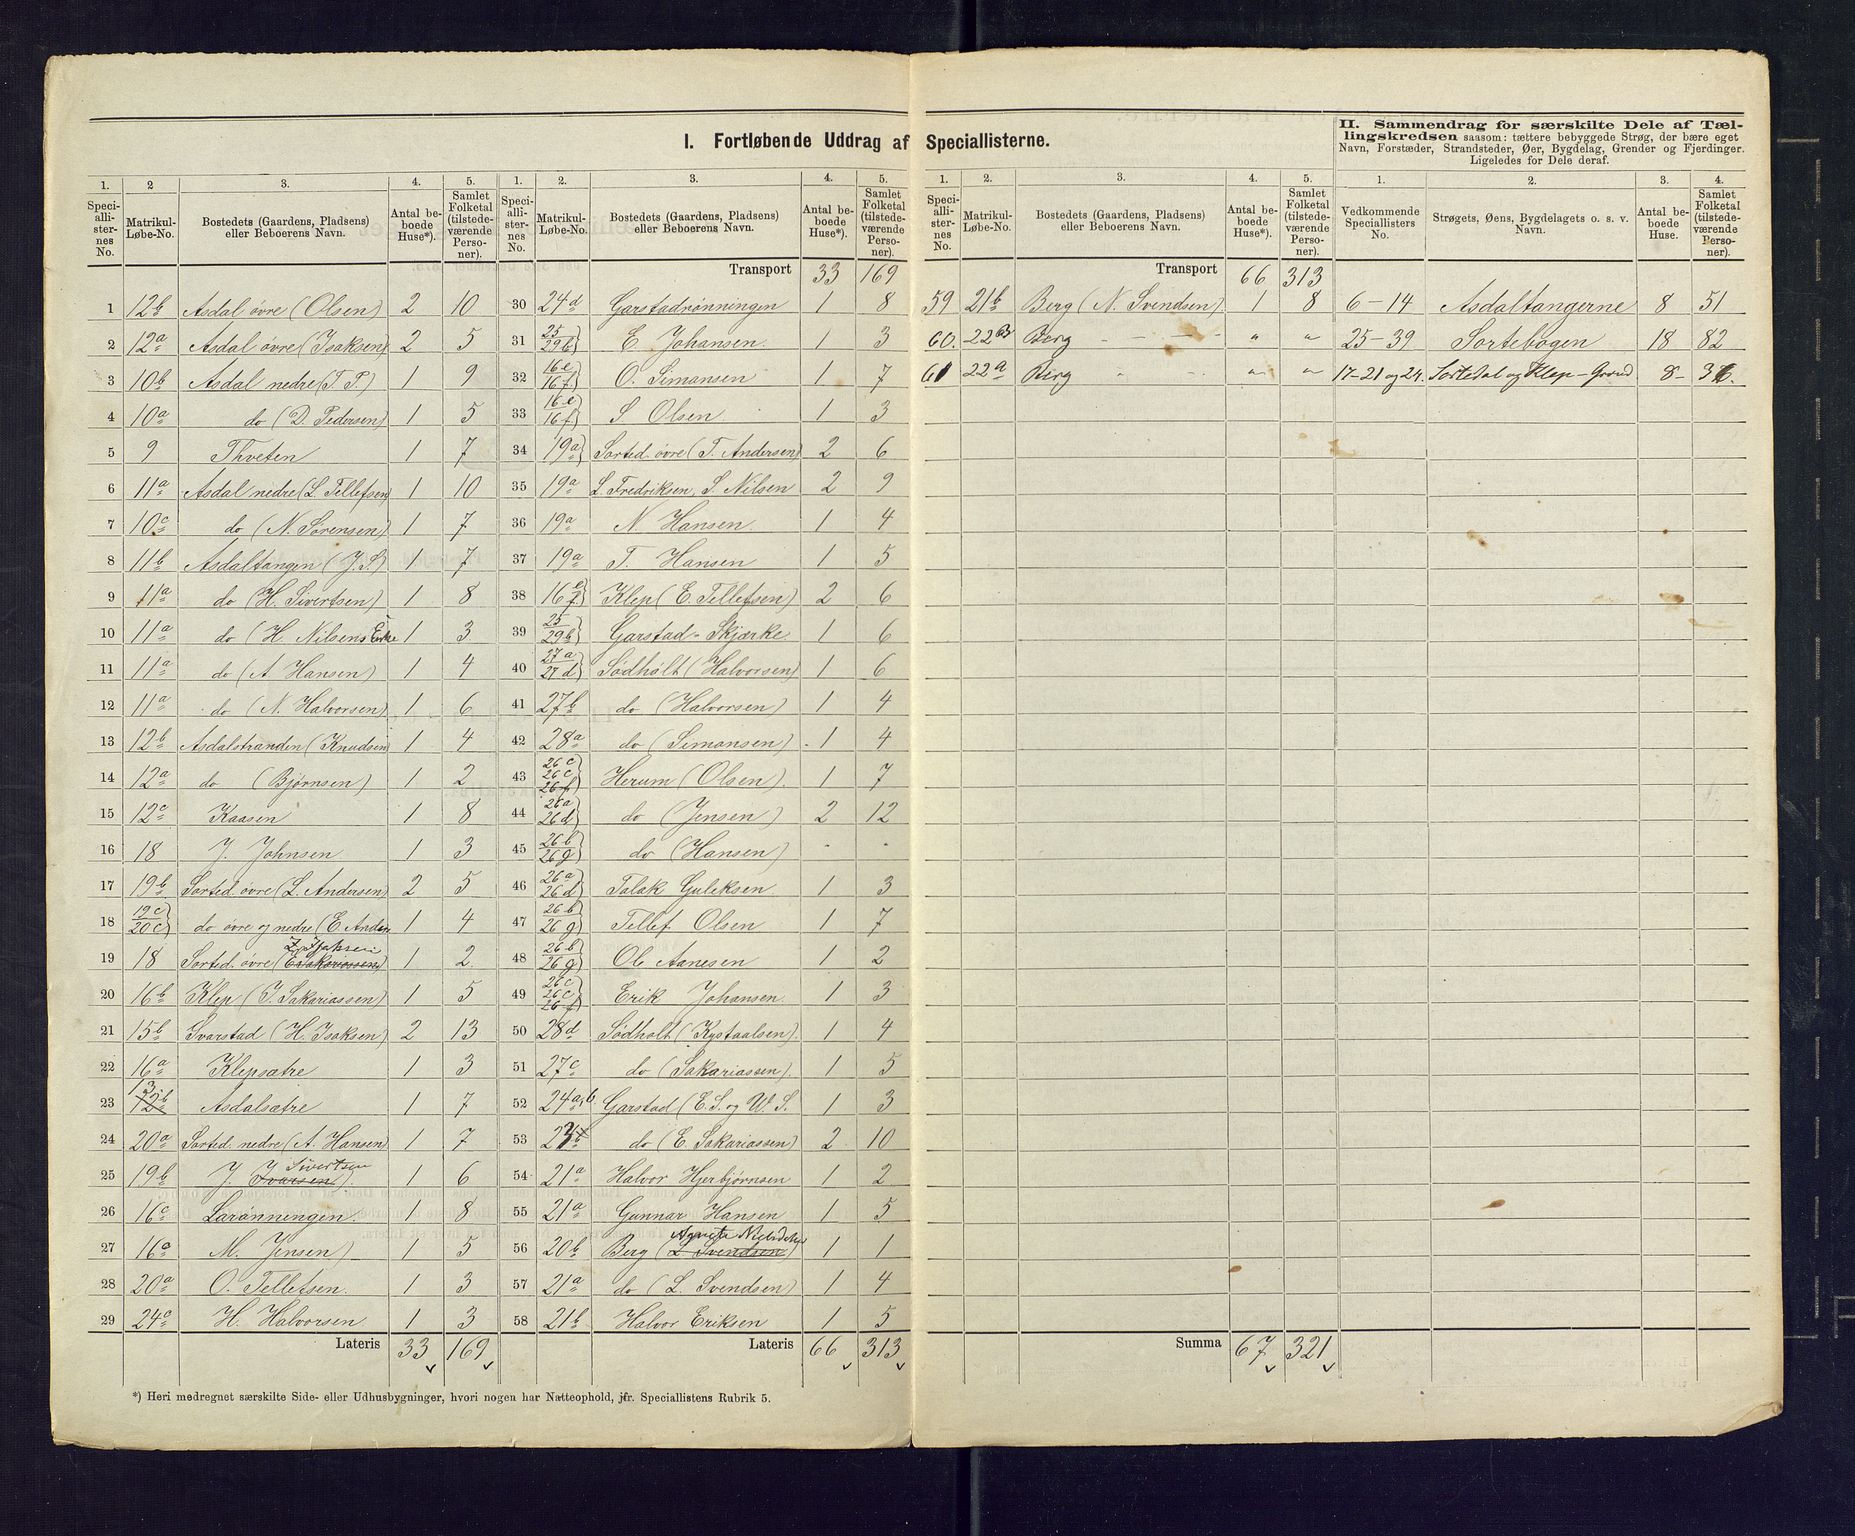 I. Fortløbende Uddrag af Speciallisterne.
II. Sammendrag for særskilte Dele af Tællingskredsen saasom: tættere bebyggede Strøg, der bære eget Navn, Forstæder, Strandsteder, Øer, Bygdelag, Grender og Fjerdinger. Ligeledes for Dele deraf.
1. 2 3. 4. 5.
Speciallisternes No. Matrikul-Løbe-No. Bostedets (Gaardens, Pladsens) eller Beboerens Navn. Antal beboede Huse*). Samlet Folketal (tilstedeværende Personer).
1 12b Asdal øvre (Olsen) 2 10
2 12a Asdal øvre (Isaksen) 2 5
3 10b Asdal nedre (T. P.) 1 9
4 10a do (D. Pedersen) 1 5
5 9 Thveten 1 7
6 11a Asdal nedre (L. Tellefsen) 1 10
7 10c do (N. Sørensen) 1 7
8 11b Asdaltangen (J. S.) 1 7
9 11a do (H. Sivertsen) 1 8
10 11a do (H. Nilsens Enke 1 3
11 11a do (A. Hansen) 1 4
12 11a do (N. Halvorsen) 1 6
13 12b Asdalstranden (Knudsen) 1 4
14 12a do (Bjørnsen) 1 2
15 12c Kaasen 1 8
16 18 J. Johnsen 1 3
17 19b Sorted. øvre (L. Andersen) 2 5
18 19c 20c do øvre og nedre (E. Anders 1 4
19 18 Sorted. øvre (E. Sakariassen) Isaksen 1 2
20 16b Klep (T. Sakariassen) 1 5
21 15b Svarstad (H. Isaksen) 2 13
22 16a Klepsætre 1 3
23 13 12b Asdalsætre 1 7
24 20a Sorted. nedre (A. Hansen) 1 7
25 19b J. Ivarsen). Sivertsen 1 6
26 16c Larønningen 1 8
27 16a M. Jensen) 1 5
28 20a O. Tellefsen. 1 3
29 24c H. Halvorsen 1 3
Lateris 33 169
1. 2. 3. 4. 5.
Speciallisternes No. Matrikul-Løbe-No. Bostedets (Gaardens, Pladsens) eller Beboerens Navn. Antal beboede Huse*). Samlet Folketal (tilstedeværende Personer).
Transport 33 169
30 24d Garstadrønningen 1 8
31 25 29b) E. Johansen 1 3
32 16e 16f) O. Simonsen 1 7
33 16e 16f) S Olsen 1 3
34 19a) Sorted. øvre (T. Andersen) 2 6
35 19a L. Fredriksen, S. Nilsen 2 9
36 19a N Hansen 1 4
37 19a T. Hansen 1 5
38 16e f) Klep (E. Tellefsen) 2 6
39 25 29b) Garstad-Skjærke 1 6
40 27a 27d) Sødholt (Halvorsen) 1 6
41 27b do (Halvorsen) 1 4
42 28a do (Simonsen) 1 4
43 26c 26c 26f) Herum (Olsen). 1 7
44 26a 26d) do (Jensen) 2 12
45 26b 26g) do (Hansen) - -
46 26a 26d) Talak Guleksen 1 3
47 26b 26g) Tellef Olsen 1 7
48 26b 26g) Ole Aanesen 1 2
49 26c 26c 26f) Erik Johansen 1 3
50 28d Sødholt (Krystaalsen). 1 4
51 27c do (Sakariassen). 1 5
52 24a,b Garstad (E. S. og W. S. 1 3
53 do (E. Sakariassen) 2 10
54 21a Halvor Hjerbjørnsen 1 2
55 21a Gunnar Hansen 1 5
56 20b Berg (L Svendsen) 1 1
57 21a do (L. Svendsen) 1 4
58 21b Halvor Eriksen 1 5
Lateris 66 313
1. 2. 3. 4. 5.
Speciallisternes No. Matrikul-Løbe-No. Bostedets (Gaardens, Pladsens) eller Beboerens Navn. Antal beboede Huse*). Samlet Folketal (tilstedeværende Personer).
Transport 66 313
59 21b Berg (N. Svendsen) 1 8
60. 22B Berg - - - " "
61 22a Berg - - - " "
Summa 67 321
1. 2. 3. 4.
Vedkommende Speciallisters No. Strøgets, Øens, Bygdelagets o. s. v. Navn. Antal beboede Huse. Samlet Folketal (tilstedeværende Personer).
6-14 Asdaltangerne 8 51
25-39 Sortebogen 18 82
17-21 og 24. Sortedal og Klep-Grend 8- 36.
*) Heri medregnet særskilte Side- eller Udhusbygninger, hvori nogen har Natteophold, jfr. Speciallistens Rubrik 5.